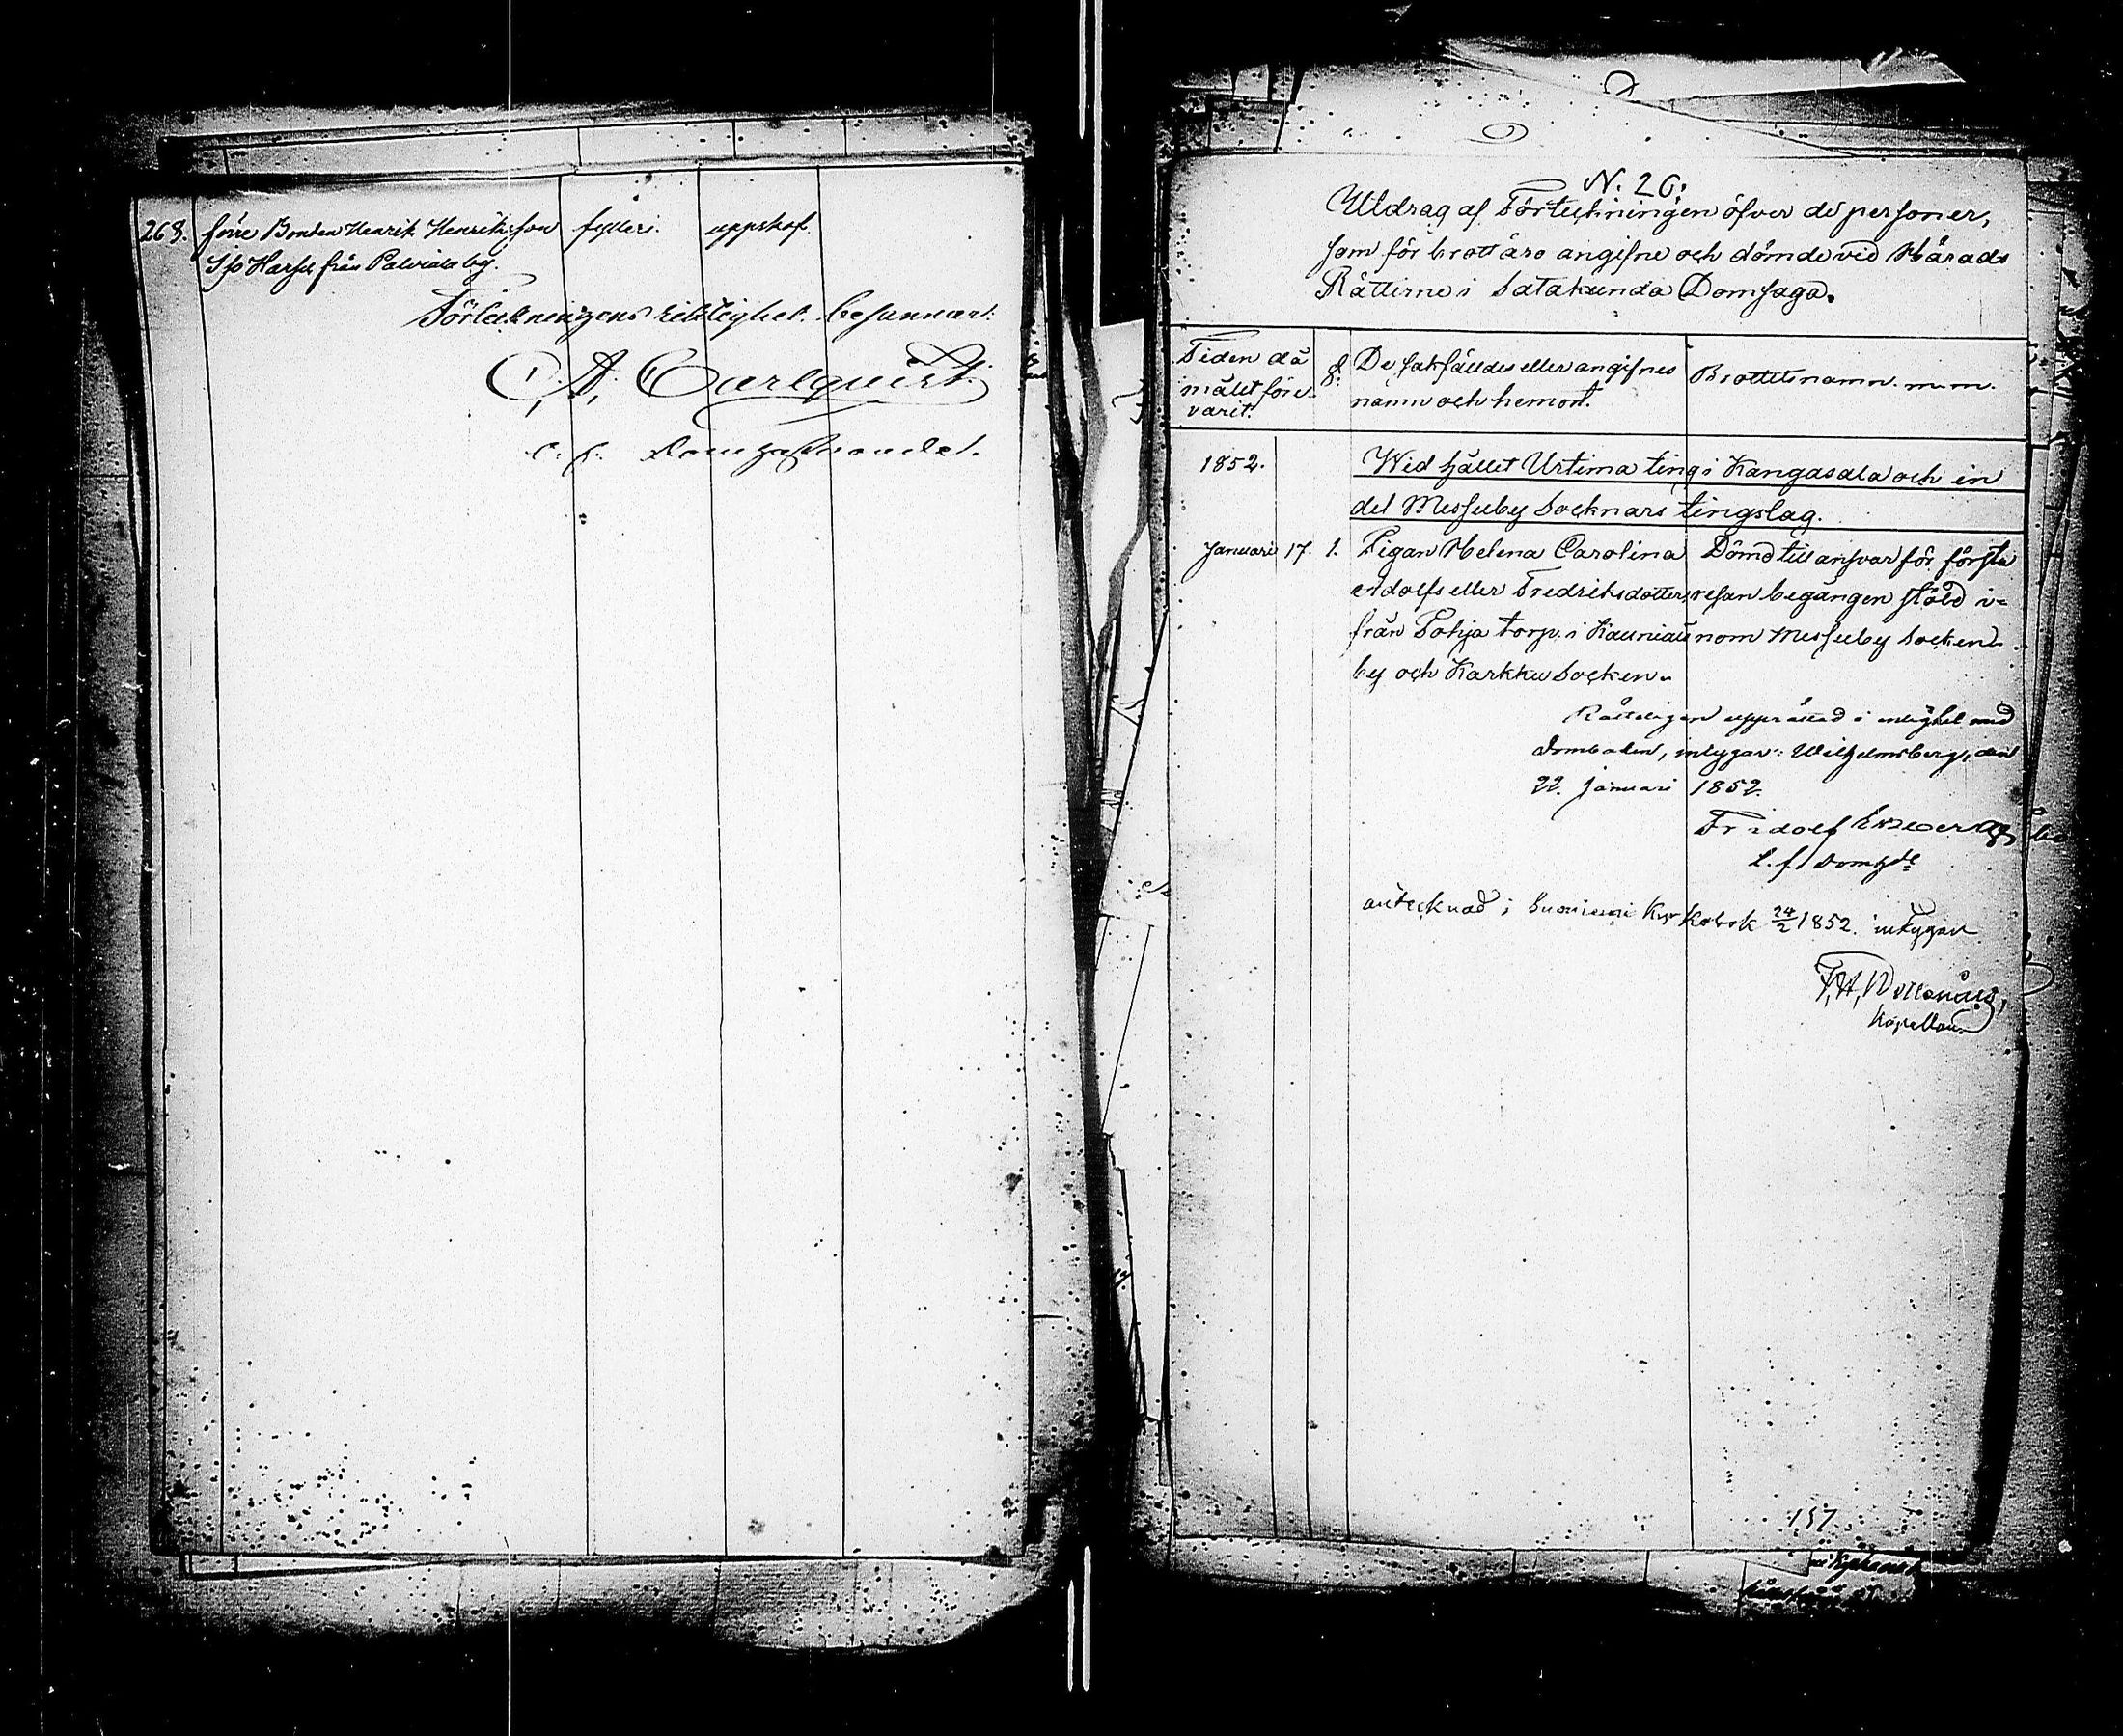 268. förre Bonden Henrik Henriksson fylleri. uppskof.
Iso Harju från Palviala by.
Förteckningens riktighet besannar:
C. A. Carlquist.
e. f. Domhafvande.
N. 26.
Utdrag af Förteckningen öfver de personer,
som för brott äro angifne och dömde vid Härads
Rätterne i Satakunda Domsaga.
Tiden då
målet före-
varit.
§.
De sakfälldes eller angifnes
namn och hemort.
Brottets namn. m. m.
1852. Wid hållet Urtima ting i Kangasala och en
del Messuby Socknars tingslag.
Januari 17. 1. Pigan Helena Carolina Dömd till ansvar för första
Adolfs eller Fredriksdotter, resan begången stöld i-
från Pohja torp i Kauniai nom Messuby Socken.
by och Karkku Socken.
Rätteligen upprättad i enlighet med
Domboken, intygar: Wilhelmsberg, den
22. Januari 1852.
Fridolf
e. f. Domhde
antecknad i Suoniemi Kyrkobok 24/2 1852. intygar
Kapellan.
157